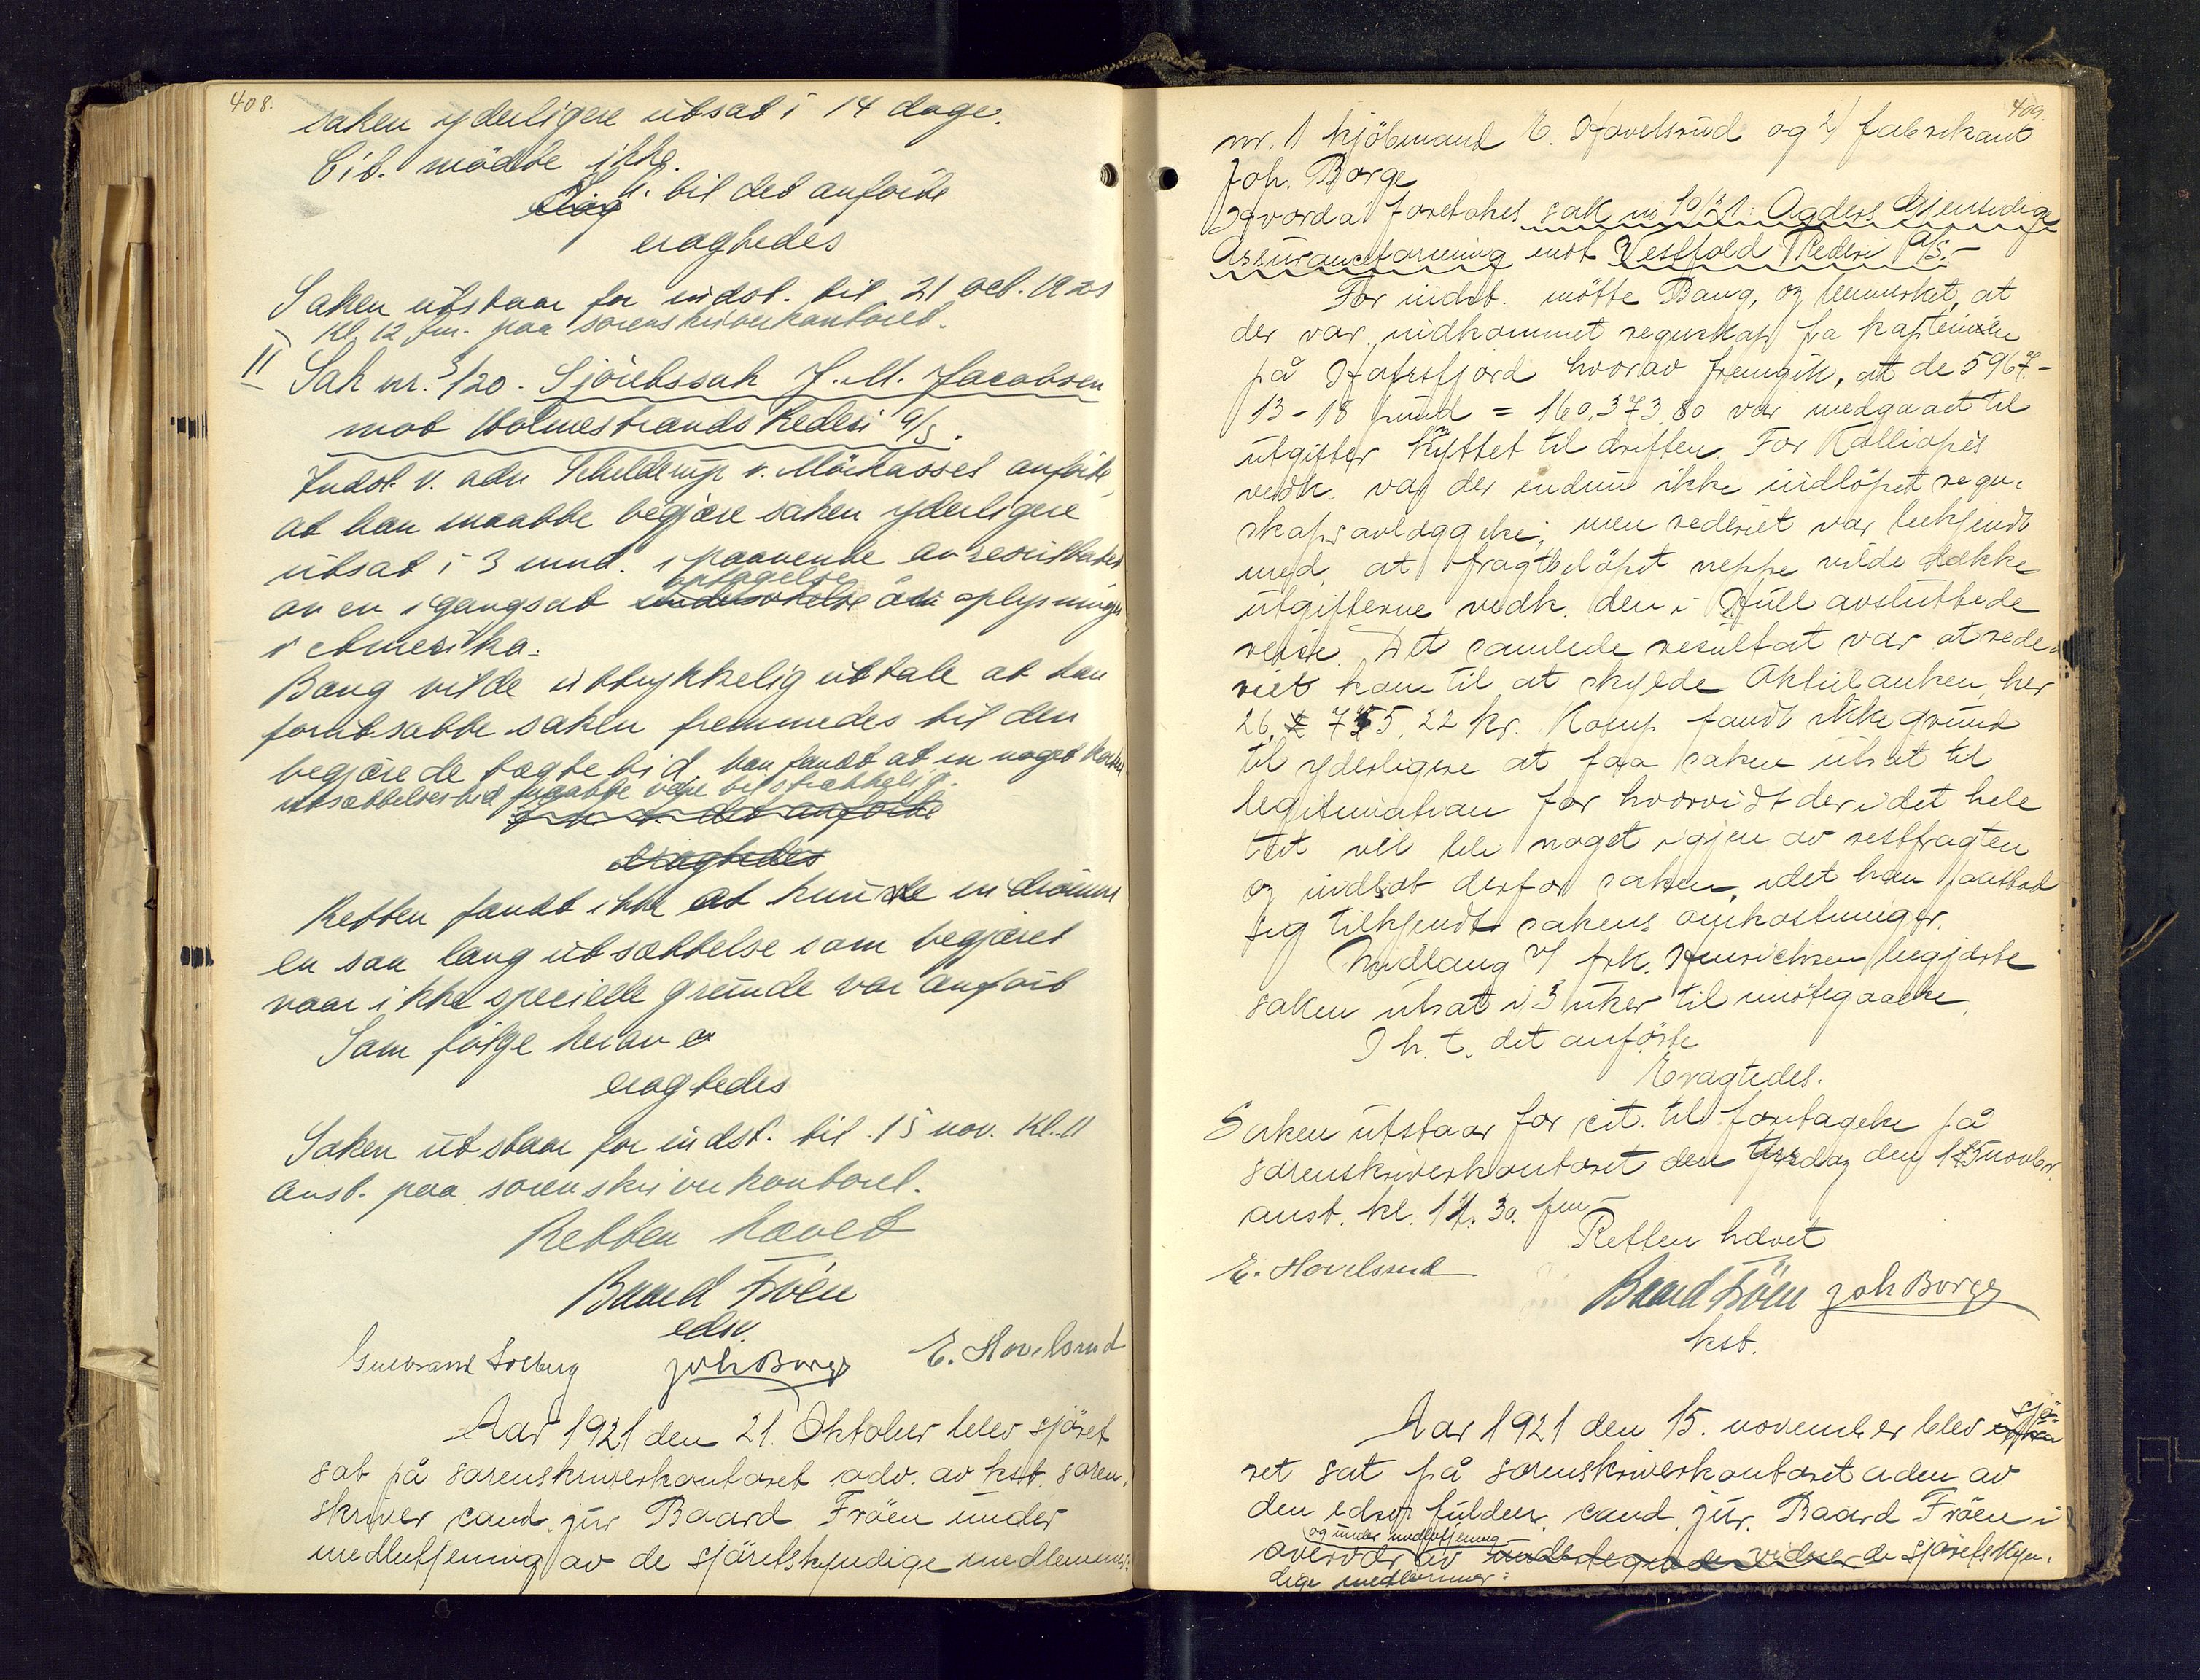 408.
saken yderligere utsat i 14 dage.
Cit. mødte ikke.
I h. til det anførte
eragtedes
Saken utstaar for indst. til 21 oct. 1921
Kl. 12 fm. paa sorenskriverkontoret.
II Sak nr. 3/20. Sjøretssak J. M. Jacobsen
mot Holmestrands Rederi A/S.
Indst. v. adv. Schelderup v. Mörkasset anførte,
at han maatte begjære saken yderligere
utsat i 3 mnd. i paavente av resultatet
optagelse
av en igangsat undersøkelse av oplysninger
i Amerika.
Bang vilde uttrykkelig uttale at han
forutsatte saken fremmedes til den
begjærede tægtetid, han fandt at en noget kortere
utsættelsestid maatte være tilstrækkelig.
I h. t. det anførte
eragtedes
Retten fandt ikke at kunde indrømme
en saa lang utsættelse som begjæret
naar ikke specielle grunde var anført
Som følge herav
eragtedes
Saken utstaar for indst. til 15 nov. Kl. 11
anst. paa sorenskriverkontoret.
Retten hævet
Baard Frøen
edsv.
Gulbrand Solberg Joh Borge E. Hovelsrud
Aar 1921 den 21. Oktober blev sjöret
sat på sorenskriverkontoret adv. av kst. soren-
skriver cand. jur Baard Fröen under
medbetjening av de sjöretskyndige medlemmer:
409.
nr. 1 kjöbmand E. Hovelsrud og 2) fabrikant
Joh. Borge
Hvorda foretokes sak no 10/21 Agders Gjensidige
Assuranceforening mot Vestfold Rederi A/S.-
For indst. mötte Bang, og bemerket, at
der var indkommet regnskap fra kapteinen
på Hafrsfjord hvorav fremgik, at de 5967.-
13-18 pund = 160.373.80 var medgaaet til
utgifter knyttet til driften. For Kalliopes
vedk. var der endnu ikke indlöpet regn-
skapsavlæggelse; men rederiet var bekjendt
med, at fragtbelöpet neppe vilde dække
utgifterne vedk. den i Hull avsluttede
reise. Det samlede resultat var at rede-
riet kom til at skylde Aktiebanken her
26.755,22 kr. Komp. fandt ikke grund
til yderligere at faa saken utsat til
legitimation for hvorvidt der i det hele
tat vil bli noget igjen av restfragten
og indlot derfor saken, idet han paastod
sig tilkjendt sakens omkostninger.
Midlang v/ frk. Henrichsen begjærte
saken utsat i 3 uker til imötegaaelse.
I h. t. det anförte
Eragtedes.
Saken utstaar for cit. til foretagelse på
sorenskriverkontoret den tirsdag den 15 novbr.
anst. kl. 11.30 fm.
Retten hævet
E. Hovelsrud
Baard Fröen Joh Borge
kst.
Aar 1921 den 15. november blev sjö-
ret sat på sorenskriverkontoret adm av
den edsv. fuldm. cand. jur. Baard Fröen i
og under medbetjening
overvær av undertegnede vidner de sjöretskyn-
dige medlemmer: